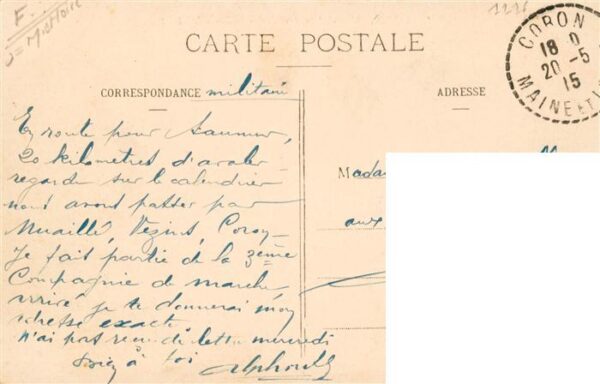 F.
1276
CORON
18 0
20-5
15
MAINE ET L
CARTE POSTALE
CORRESPONDANCE militaire
ADRESSE
En route pour Saumur,
20 kilomètres d'avaler
regarde sur le calendrier
nous avons passer par
Nuaillé, Vezins, Coron
Je fait partie de la 3eme
Compagnie de marche
arrivé je te donnerai mon
adresse exacte.
n'ai pas reçu de lettre mercredi
Bien à toi
Mada
aux